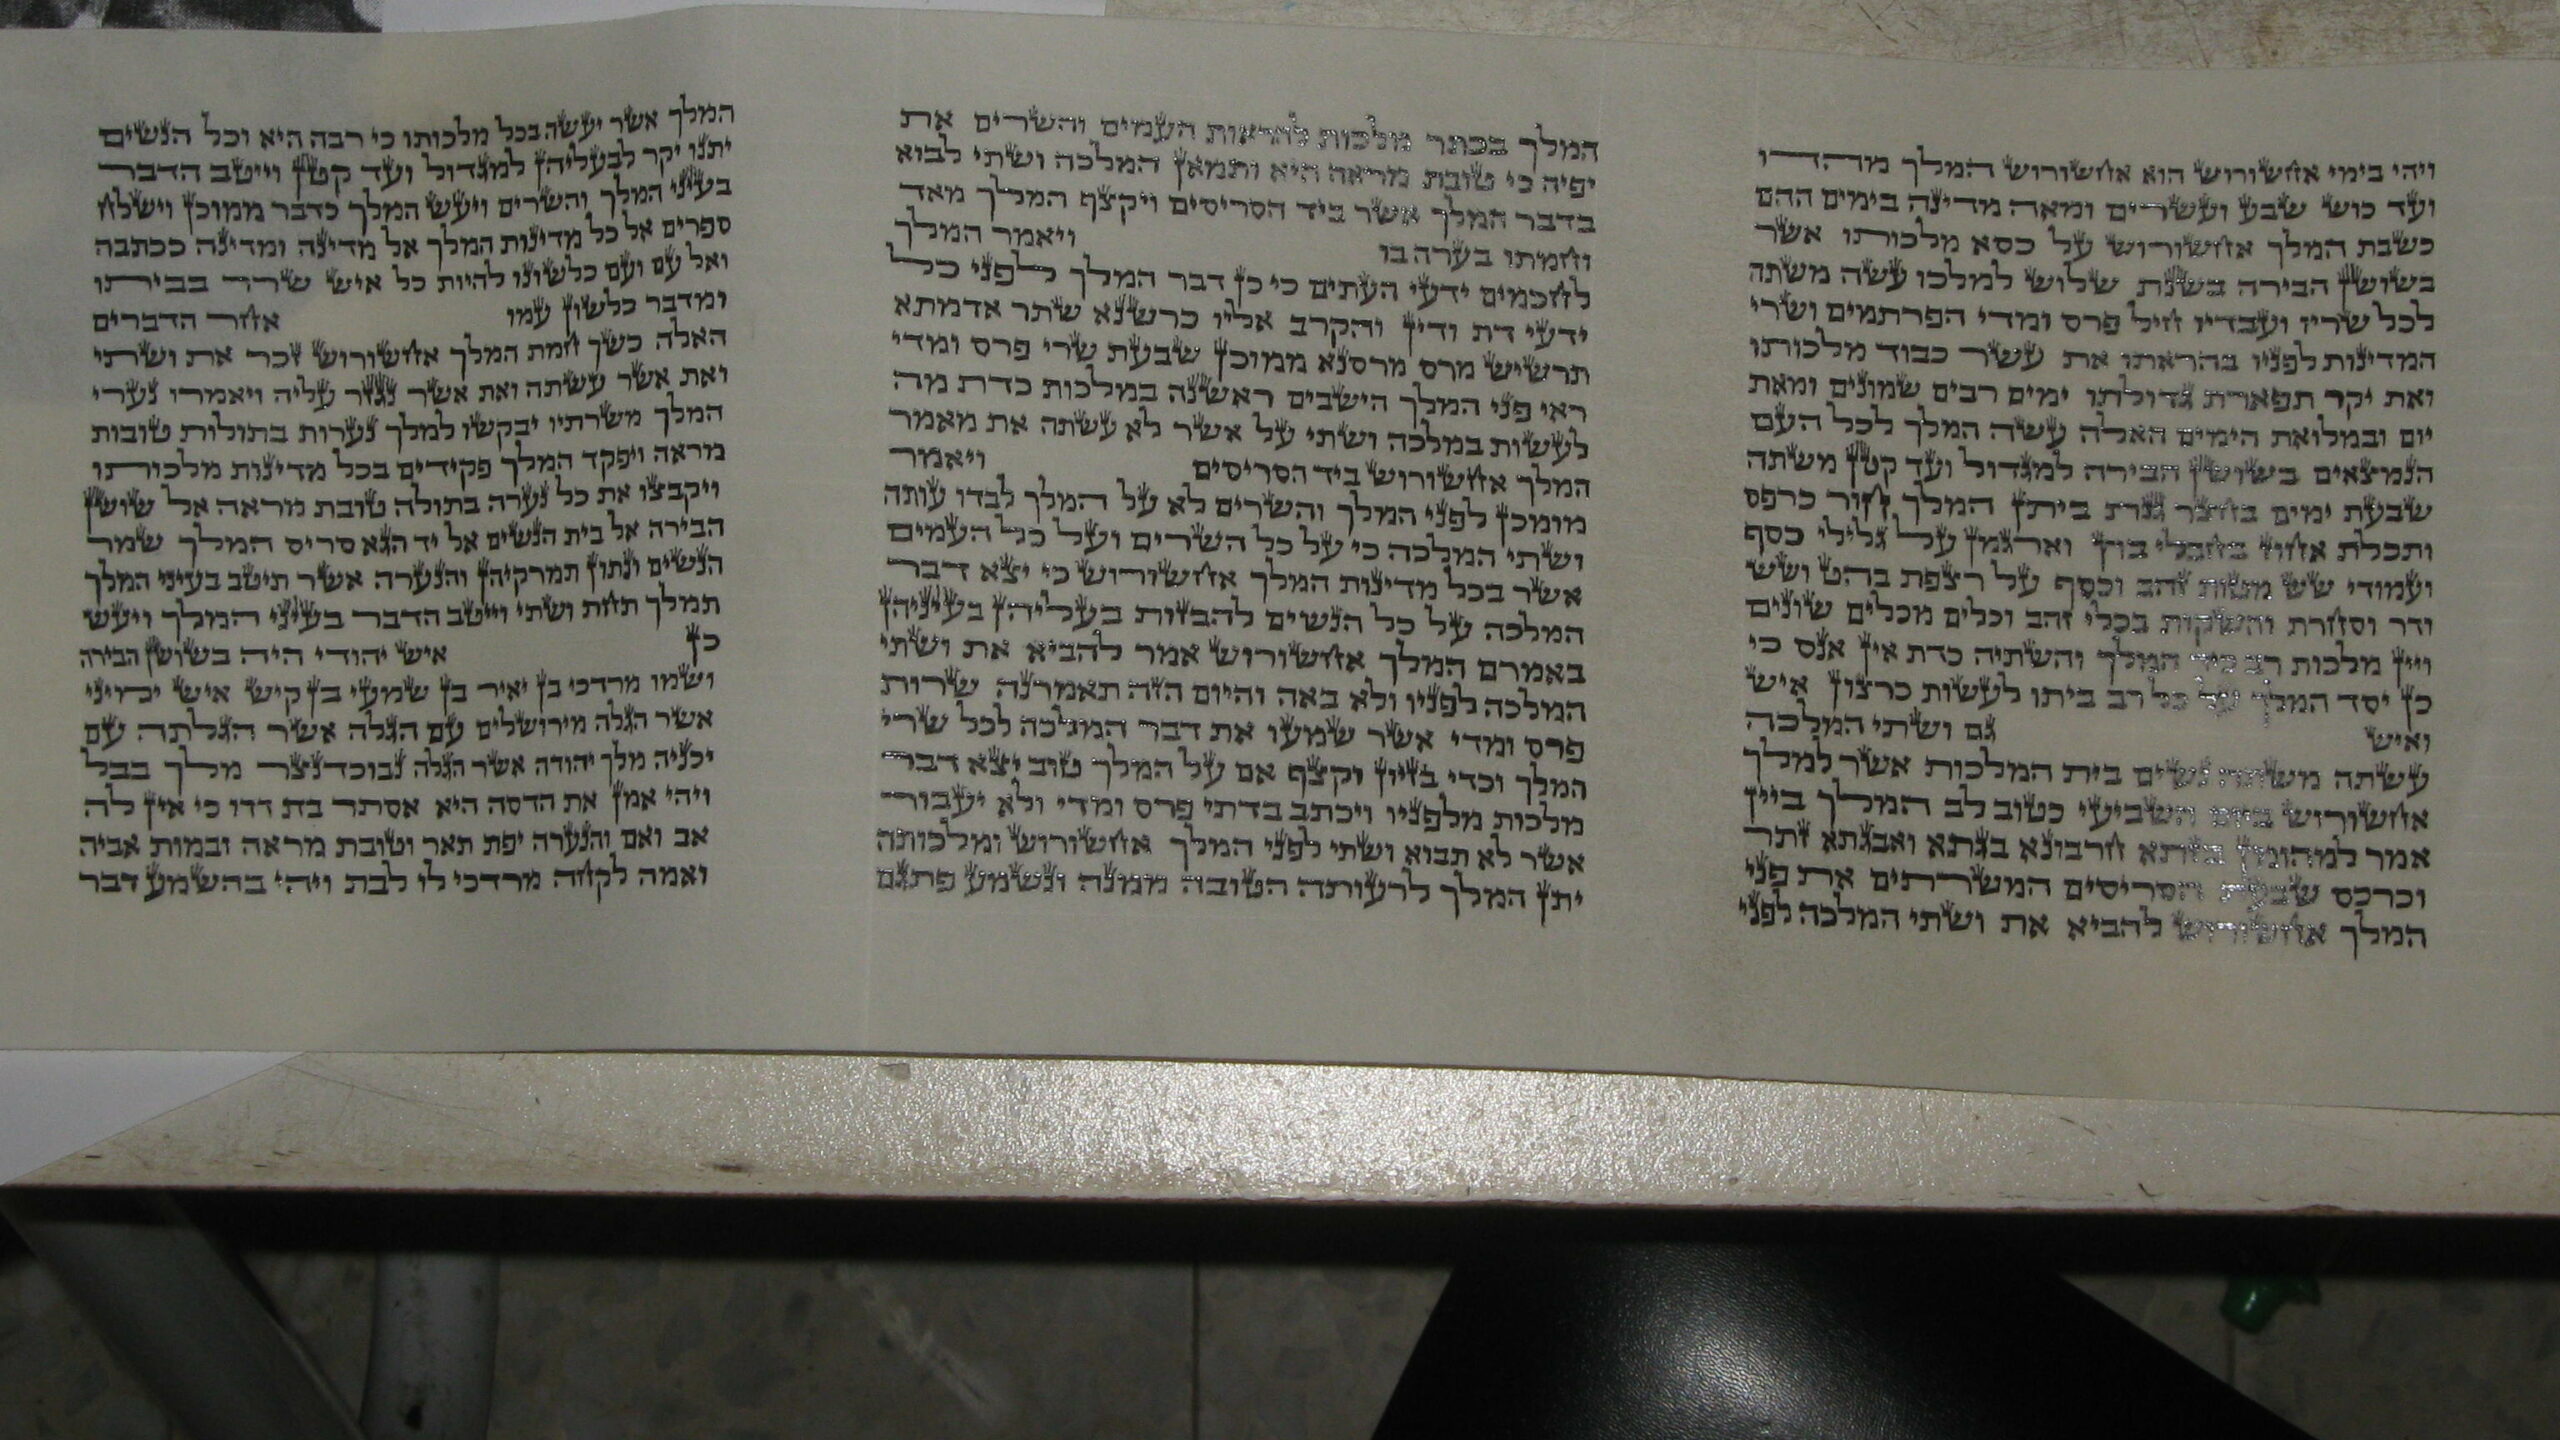 ויהי בימי אחשורוש הוא אחשורוש המלך מהדו
ועד כוש שבע ועשרים ומאה מדינה בימים ההם
כשבת המלך אחשורוש על כסא מלכותו אשר
בשושן הבירה בשנת שלוש למלכו עשה משתה
לכל שריו ועבדיו חיל פרס ומדי הפרתמים ושרי
המדינות לפניו בהראתו את עשר כבוד מלכותו
ואת יקר תפארת גדולתו ימים רבים שמונים ומאת
יום ובמלואת הימים האלה עשה המלך לכל העם
הנמצאים בשושן הבירה למגדול ועד קטן משתה
שבעת ימים בחצר גנת ביתן המלך חור כרפס
ותכלת אחוז בחבלי בוץ וארגמן על גלילי כסף
ועמודי שש מטות זהב וכסף על רצפת בהט ושש
ודר וסחרת והשקות בכלי זהב וכלים מכלים שונים
ויין מלכות רב כיד המלך והשתיה כדת אין אנס כי
כן יסד המלך על כל רב ביתו לעשות כרצון איש
ואיש גם ושתי המלכה
עשתה משתה נשים בית המלכות אשר למלך
אחשורוש ביום השביעי כטוב לב המלך ביין
אמר למהומן בזתא חרבונא בגתא ואבגתא זתר
וכרכס שבעת הסריסים המשרתים את פני
המלך אחשורוש להביא את ושתי המלכה לפני
המלך בכתר מלכות להראות העמים והשרים את
יפיה כי טובת מראה היא ותמאן המלכה ושתי לבוא
בדבר המלך אשר ביד הסריסים ויקצף המלך מאד
וחמתו בערה בו ויאמר המלך
לחכמים ידעי העתים כי כן דבר המלך לפני כל
ידעי דת ודין והקרב אליו כרשנא שתר אדמתא
תרשיש מרס מרסנא ממוכן שבעת שרי פרס ומדי
ראי פני המלך הישבים ראשנה במלכות כדת מה
לעשות במלכה ושתי על אשר לא עשתה את מאמר
המלך אחשורוש ביד הסריסים ויאמר
מומכן לפני המלך והשרים לא על המלך לבדו עותה
ושתי המלכה כי על כל השרים ועל כל העמים
אשר בכל מדינות המלך אחשורוש כי יצא דבר
המלכה על כל הנשים להבזות בעליהן בעיניהן
באמרם המלך אחשורוש אמר להביא את ושתי
המלכה לפניו ולא באה והיום הזה תאמרנה שרות
פרס ומדי אשר שמעו את דבר המלכה לכל שרי
המלך וכדי בזיון וקצף אם על המלך טוב יצא דבר
מלכות מלפניו ויכתב בדתי פרס ומדי ולא יעבור
אשר לא תבוא ושתי לפני המלך אחשורוש ומלכותה
יתן המלך לרעותה הטובה ממנה ונשמע פתגם
המלך אשר יעשה בכל מלכותו כי רבה היא וכל הנשים
יתנו יקר לבעליהן למגדול ועד קטן וייטב הדבר
בעיני המלך והשרים ויעש המלך כדבר ממוכן וישלח
ספרים אל כל מדינות המלך אל מדינה ומדינה ככתבה
ואל עם ועם כלשונו להיות כל איש שרר בביתו
ומדבר כלשון עמו אחר הדברים
האלה כשך חמת המלך אחשורוש זכר את ושתי
ואת אשר עשתה ואת אשר נגזר עליה ויאמרו נערי
המלך משרתיו יבקשו למלך נערות בתולות טובות
מראה ויפקד המלך פקידים בכל מדינות מלכותו
ויקבצו את כל נערה בתולה טובת מראה אל שושן
הבירה אל בית הנשים אל יד הגא סריס המלך שמר
הנשים ונתון תמרקיהן והנערה אשר תיטב בעיני המלך
תמלך תחת ושתי וייטב הדבר בעיני המלך ויעש
כן איש יהודי היה בשושן הבירה
ושמו מרדכי בן יאיר בן שמעי בן קיש איש ימיני
אשר הגלה מירושלים עם הגלה אשר הגלתה עם
יכניה מלך יהודה אשר הגלה נבוכדנצר מלך בבל
ויהי אמן את הדסה היא אסתר בת דדו כי אין לה
אב ואם והנערה יפת תאר וטובת מראה ובמות אביה
ואמה לקחה מרדכי לו לבת ויהי בהשמע דבר